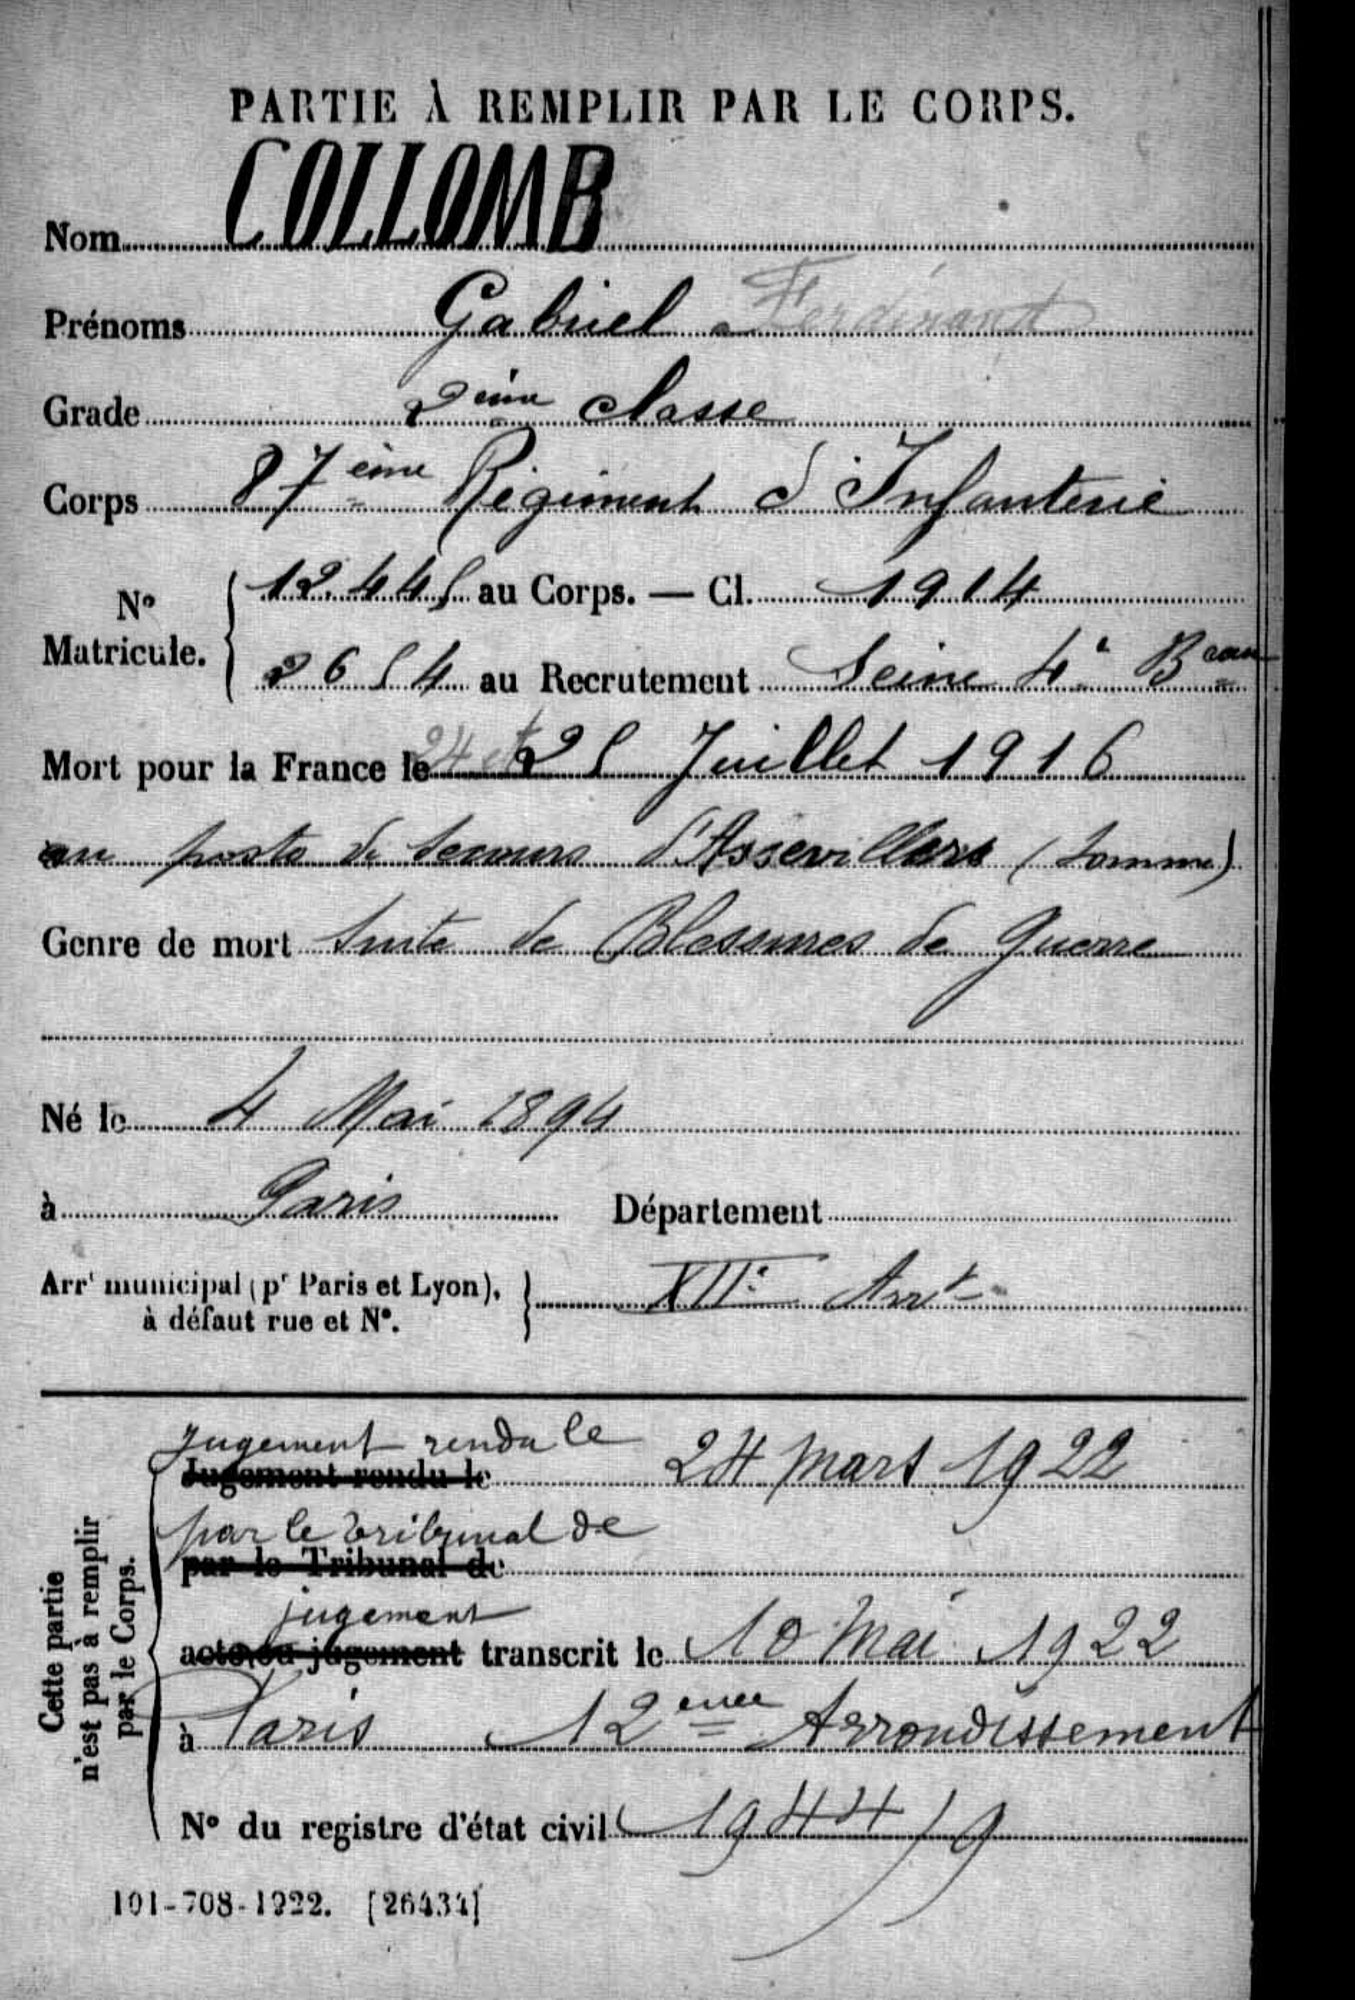 PARTIE À REMPLIR PAR LE CORPS.
Nom COLLOMB
Prénoms Gabriel Ferdinand
Grade 2ème classe
Corps 87ème Régiment d'Infanterie
N° Matricule. 12.445 au Corps. — Cl. 1914
2654 au Recrutement Seine 4e Beau
Mort pour la France le 24 et 25 Juillet 1916
au poste de secours d'Assevillers (Somme)
Genre de mort Suite de Blessures de Guerre
Né le 4 Mai 1894
à Paris Département
Arrt municipal (pr Paris et Lyon), à défaut rue et N°. XIIe Arrt
Cette partie n'est pas à remplir par le Corps.
jugement rendu le 24 mars 1922
Jugement rendu le
par le tribunal de
par le Tribunal de
jugement
acte ou jugement transcrit le 10 Mai 1922
à Paris 12eme Arrondissement
N° du registre d'état civil 1944/9
101-708-1922. [26434]